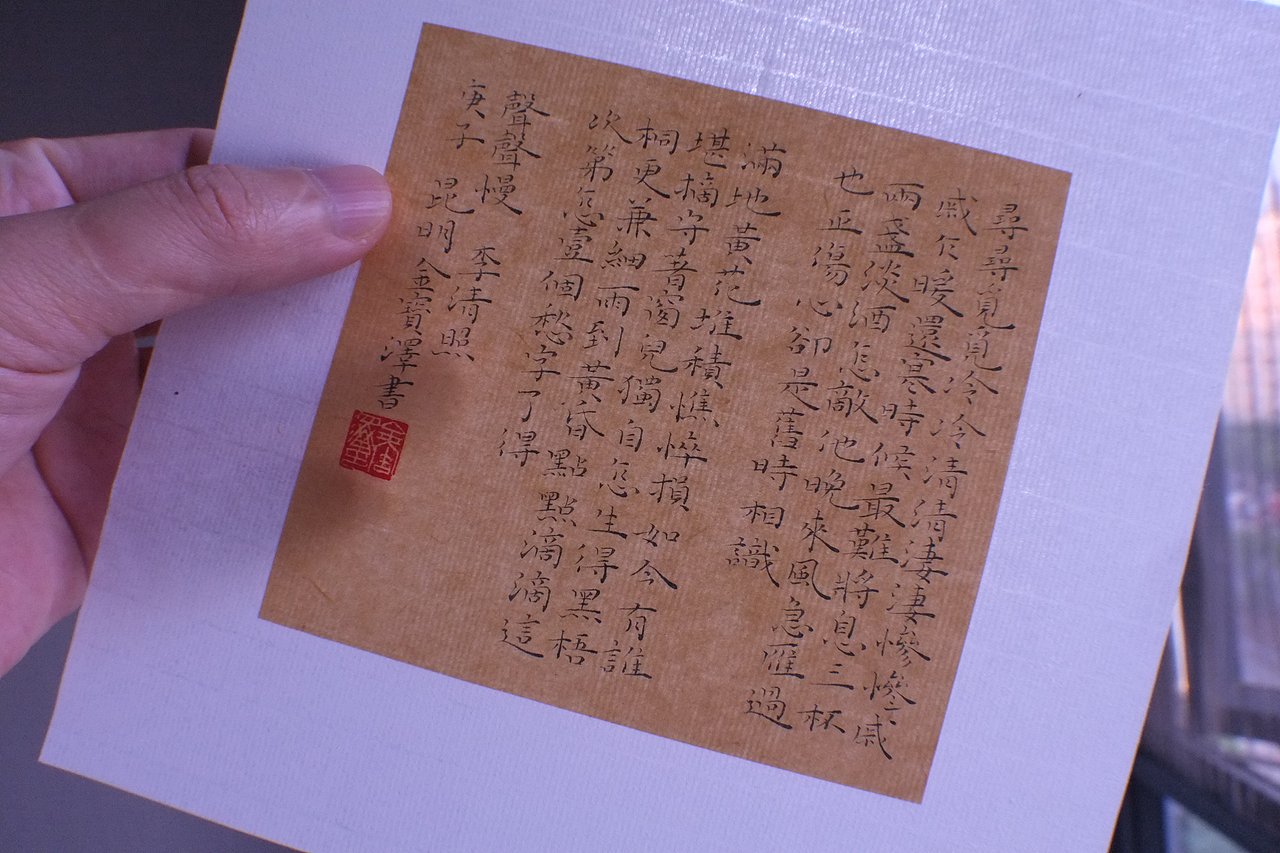 尋尋覓覓冷冷清清淒淒慘慘戚
戚乍暖還寒時候最難將息三杯
兩盞淡酒怎敵他晚來風急雁過
也正傷心卻是舊時相識
滿地黃花堆積憔悴損如今有誰
堪摘守著窗兒獨自怎生得黑梧
桐更兼細雨到黃昏點點滴滴這
次第怎壹個愁字了得
聲聲慢 李清照
庚子 昆明金寶澤書